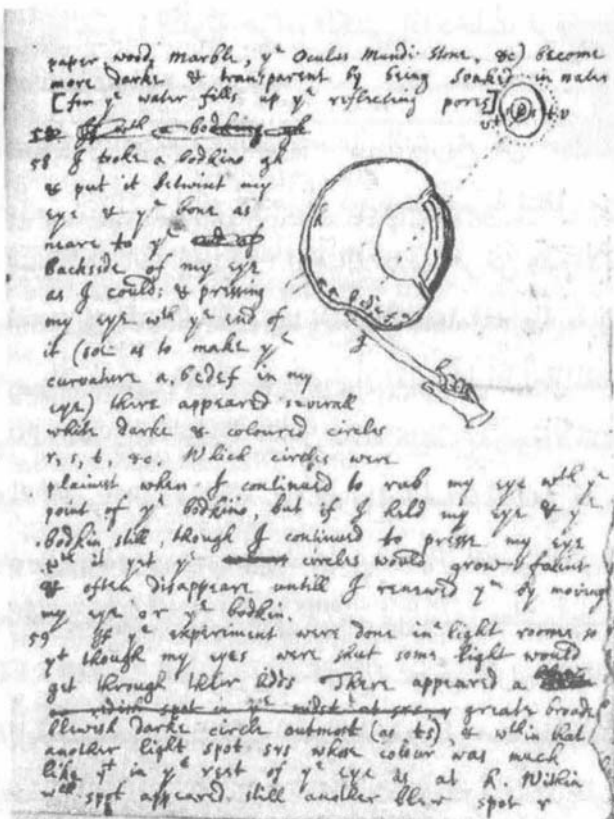 paper, wood, marble, yᵉ Oculus Mundi Stone, &c) become
more darke & transparent by being soaked in water
[for yᵉ water fills up yᵉ reflecting pores]
58 I tooke a bodkine gh
& put it betwixt my
eye & yᵉ bone as
neare to yᵉ
backside of my eye
as I could: & pressing
my eye wᵗʰ yᵉ end of
it (soe as to make yᵉ
curvature a bcdef in my
eye) there appeared severall
white darke & coloured circles
r, s, t, &c. Which circles were
plainest when I continued to rub my eye wᵗʰ yᵉ
point of yᵉ bodkine, but if I held my eye & yᵉ
bodkin still, though I continued to presse my eye
wᵗʰ it yet yᵉ circles would grow faint
& often disappeare untill I renewed yᵐ by moving
my eye or yᵉ bodkin.
59 If yᵉ experiment were done in a light roome so
yᵗ though my eyes were shut some light would
get through their lidds There appeared a
greate broade
blewish darke circle outmost (as ts), & wᵗʰin that
another light spot srs whose colour was much
like yᵗ in yᵉ rest of yᵉ eye as at k. Within
wᶜʰ spot appeared still another blew spot r